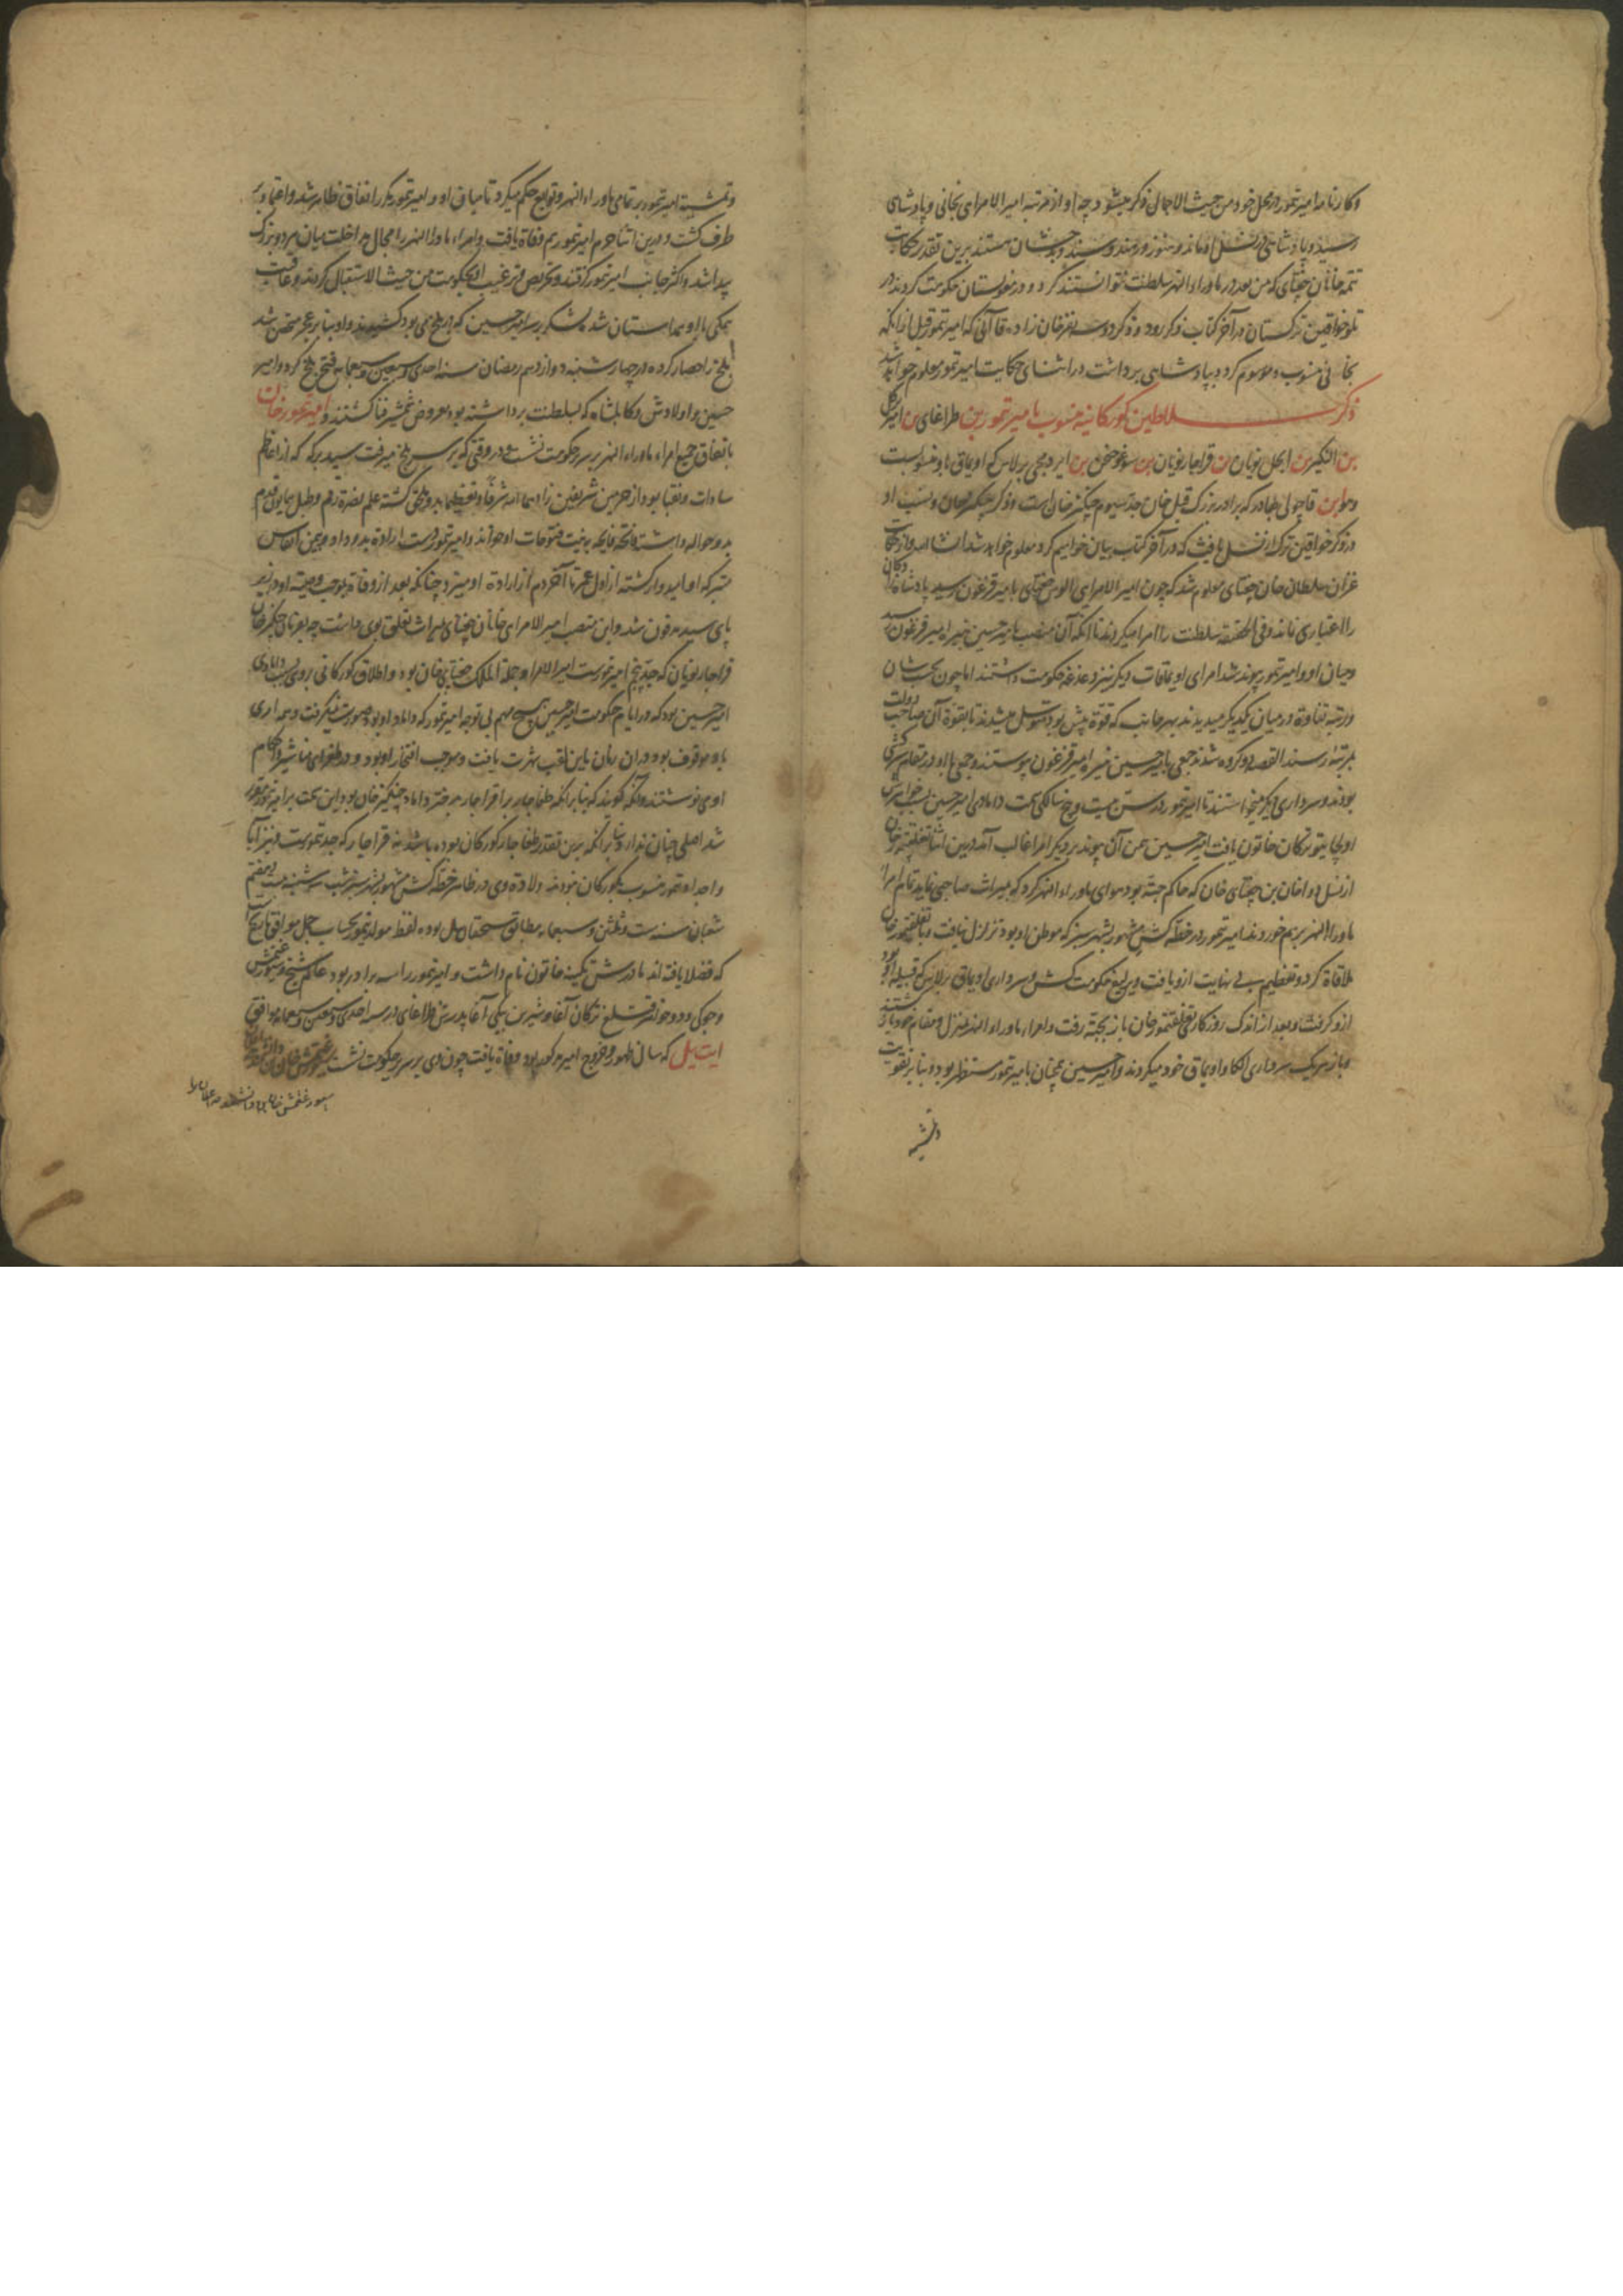 و کارنامه امیر تمور در محل خود من حیث الاجمال ذکر میشود چه او از مرتبه امیر الامرای بخانی و پادشاهی
رسید و پادشاهی در نسل او ماند و هنوز در هند و سند و بدخشان هستند برین تقدیر حکایت
تتمه خانان چغتای که من بعد در ماوراء النهر سلطنت نتوانستند کرد و در مغولستان حکومت کردند در
تلو خواقین ترکستان در آخر کتاب ذکر رود و ذکر دو سه نفر خان زاده قاآنی که امیر تمور قبل از آنکه
بخانی منسوب و موسوم کردد بپادشاهی برداشت در اثنای حکایت امیر تمور معلوم خواهد شد
ذکر سلاطین کورکانیه منسوب با میر تمور بن طراغای بن امیر برکل
بن النکیز بن ایجل نویان بن قراجار نویان بن سوغوجن بن ایردمجی برلاس که اویماق باو منسوبست
وهو ابن قاجولی بهادر که برادر بزرک قبل خان جد سیوم چنکیز خان است و ذکر چنکیز خان و نسب او
در ذکر خواقین ترک از نسل یافث که در آخر کتاب بیان خواهیم کرد معلوم خواهد شد انشاءالله و از حکایت
غزان سلطان خان چغتای معلوم شد که چون امیر الامرای الوس چغتای با میر قزغون رسید پادشاهان
را اعتباری نماند و فی الحقیقه سلطنت را امرا میکردند تا آنکه آن منصب بامیر حسین نبیره امیر قزغون رسید
و میان او و امیر تمور پیوند شد امرای اویماقات دیکر نیز دغدغه حکومت داشتند اما چون بحسب شان
و رتبه تفاوة در میان یکدیکر میدیدند بهر جانب که قوة بیش بود متوسل میشدند تا بقوة آن صاحب دولت
بمرتبه رسند القصه دو کروه شدند جمعی بامیر حسین نبیره امیر قزغون پیوستند و جمعی با او در مقام سرکشی
بودند و سرداری دیکر میخواستند تا امیر تمور در سن بیست و پنج سالکی بجهت دامادی امیر حسین بسبب خواهرش
اولجایتو ترکان خاتون یافت امیر حسین بیمن آن پیوند بر دیکر امرا غالب آمد در بین اثنا تغلقتمور خان
از نسل دوا خان بن چغتای خان که حاکم جته بود هوای ماوراء النهر کرد که میراث صاحبی نماید تمام امرا
ماوراء النهر بر هم خوردند امیر تمور در خطه کش مشهور بشهر سبز که موطن او بود تزلزل نیافت و با تغلقتمور خان
ملاقاة کرد و تعظیم بی نهایت ازو یافت و یرلیغ حکومت کش و سرداری اویماق برلاس که قبیله او بود
ازو کرفت و بعد از اندک روزکار تغلقتمور خان باز بجته رفت و امراء ماوراء النهر بمنزل و مقام خود باز کشتند
و باز هر یک سرداری الکا و اویماق خود میکردند و امیر حسین همچنان بامیر تمور مستظهر بود و بنابر تقویت
و تمشیة
و تمشیة امیر تمور بر تمامی ماوراء النهر و توابع حکم میکرد تا میان او و امیر تمور یکدیکر را نفاق ظاهر شد و اعتماد بر
طرف کشت و درین اثنا حرم امیر تمور هم وفاة یافت و امراء ماوراء النهر را مجال مداخلت میان هر دو بزرک
پیدا شد و اکثر جانب امیر تمور کرفتند و تحریص و ترغیب او بحکومت من حیث الاستقلال کردند و عاقبت
همکی با او همداستان شده لشکر بر سر امیر حسین که در بلخ می بود کشیدند و او بنابر عجز متحصن شد
بلخ را حصار کرده در چهار شنبه دوازدهم رمضان سنه احدی و سبعین و سبعمایه فتح بلخ کرد و امیر
حسین و اولادش و کابلشاه که بسلطنت برداشته بود معروض شمشیر فنا کشتند و امیر تمور خان
باتفاق جمیع امراء ماوراء النهر بر سریر حکومت نشست و در وقتی که بر سر بلخ میرفت سید برکه که از اعاظم
سادات و نقبا بود از حرمین شریفین زادهما الله شرفا و تعظیما بدو ملحق کشته علم نصرة رقم و طبل همایون قدم
بدو حواله داشته فاتحه فایحه به نیت فتوحات او خواند و امیر تمور دست ارادة بدو داد و بیمن انفاس
متبرکه او امیدوار کشته از اول عمر تا آخر دم از ارادة او میزد چنانکه بعد از وفاة بموجب وصیة او در زیر
پای سید مدفون شد و این منصب امیر الامرای خانان چغتای بمیراث تعلق بوی داشت چه بفرمان چنکیز خان
قراجار نویان که جد پنجم امیر تمورست امیر الامرا و جملة الملک چغتای خان بود و اطلاق کورکانی بر وی بسبب دامادی
امیر حسین بود که در ایام حکومت امیر حسین هیچ مهم بی توجه امیر تمور که داماد او بود صورت نمیکرفت و همه امری
باو موقوف بود در آن زمان باین لقب شهرت یافت و موجب افتخار او بود و در طغرای مناشیر و احکام
او می نوشتند و آنکه کویند که بنابر آنکه طغاجار برا قراجار بدختر داماد چنکیز خان بود این بحث بر امیر تمور مقرر
شد اصلی چنان ندارد بنابر آنکه برین تقدیر طغاجار کورکان بوده باشد نه قراجار که جد تمورست و نیز آبا
و اجداد تمور منسوب بکورکان نبودند ولادة وی در ظاهر خطه کش مشهور بشهر سبز شب سه شنبه بیست و هفتم
شعبان سنه ست و ثلثین و سبعمایه مطابق سیچقان ییل بوده لفظ مولد تمور بحساب جمل موافق تاریخ است
که فضلا یافته اند مادرش تکینه خاتون نام داشت و امیر تمور را سه برادر بود عالم شیخ و سیورغتمش
و جوکی و دو خواهر قتلغ ترکان آغا و شیرین بیکی آغا پدرش طراغای در سنه احدی و ستین و سبعمایه موافق
ایت ییل که سال ظهور و خروج امیر مذکور بود وفاة یافت چون وی بر سریر حکومت نشست سیورغتمش خان
سیورغتمش خان